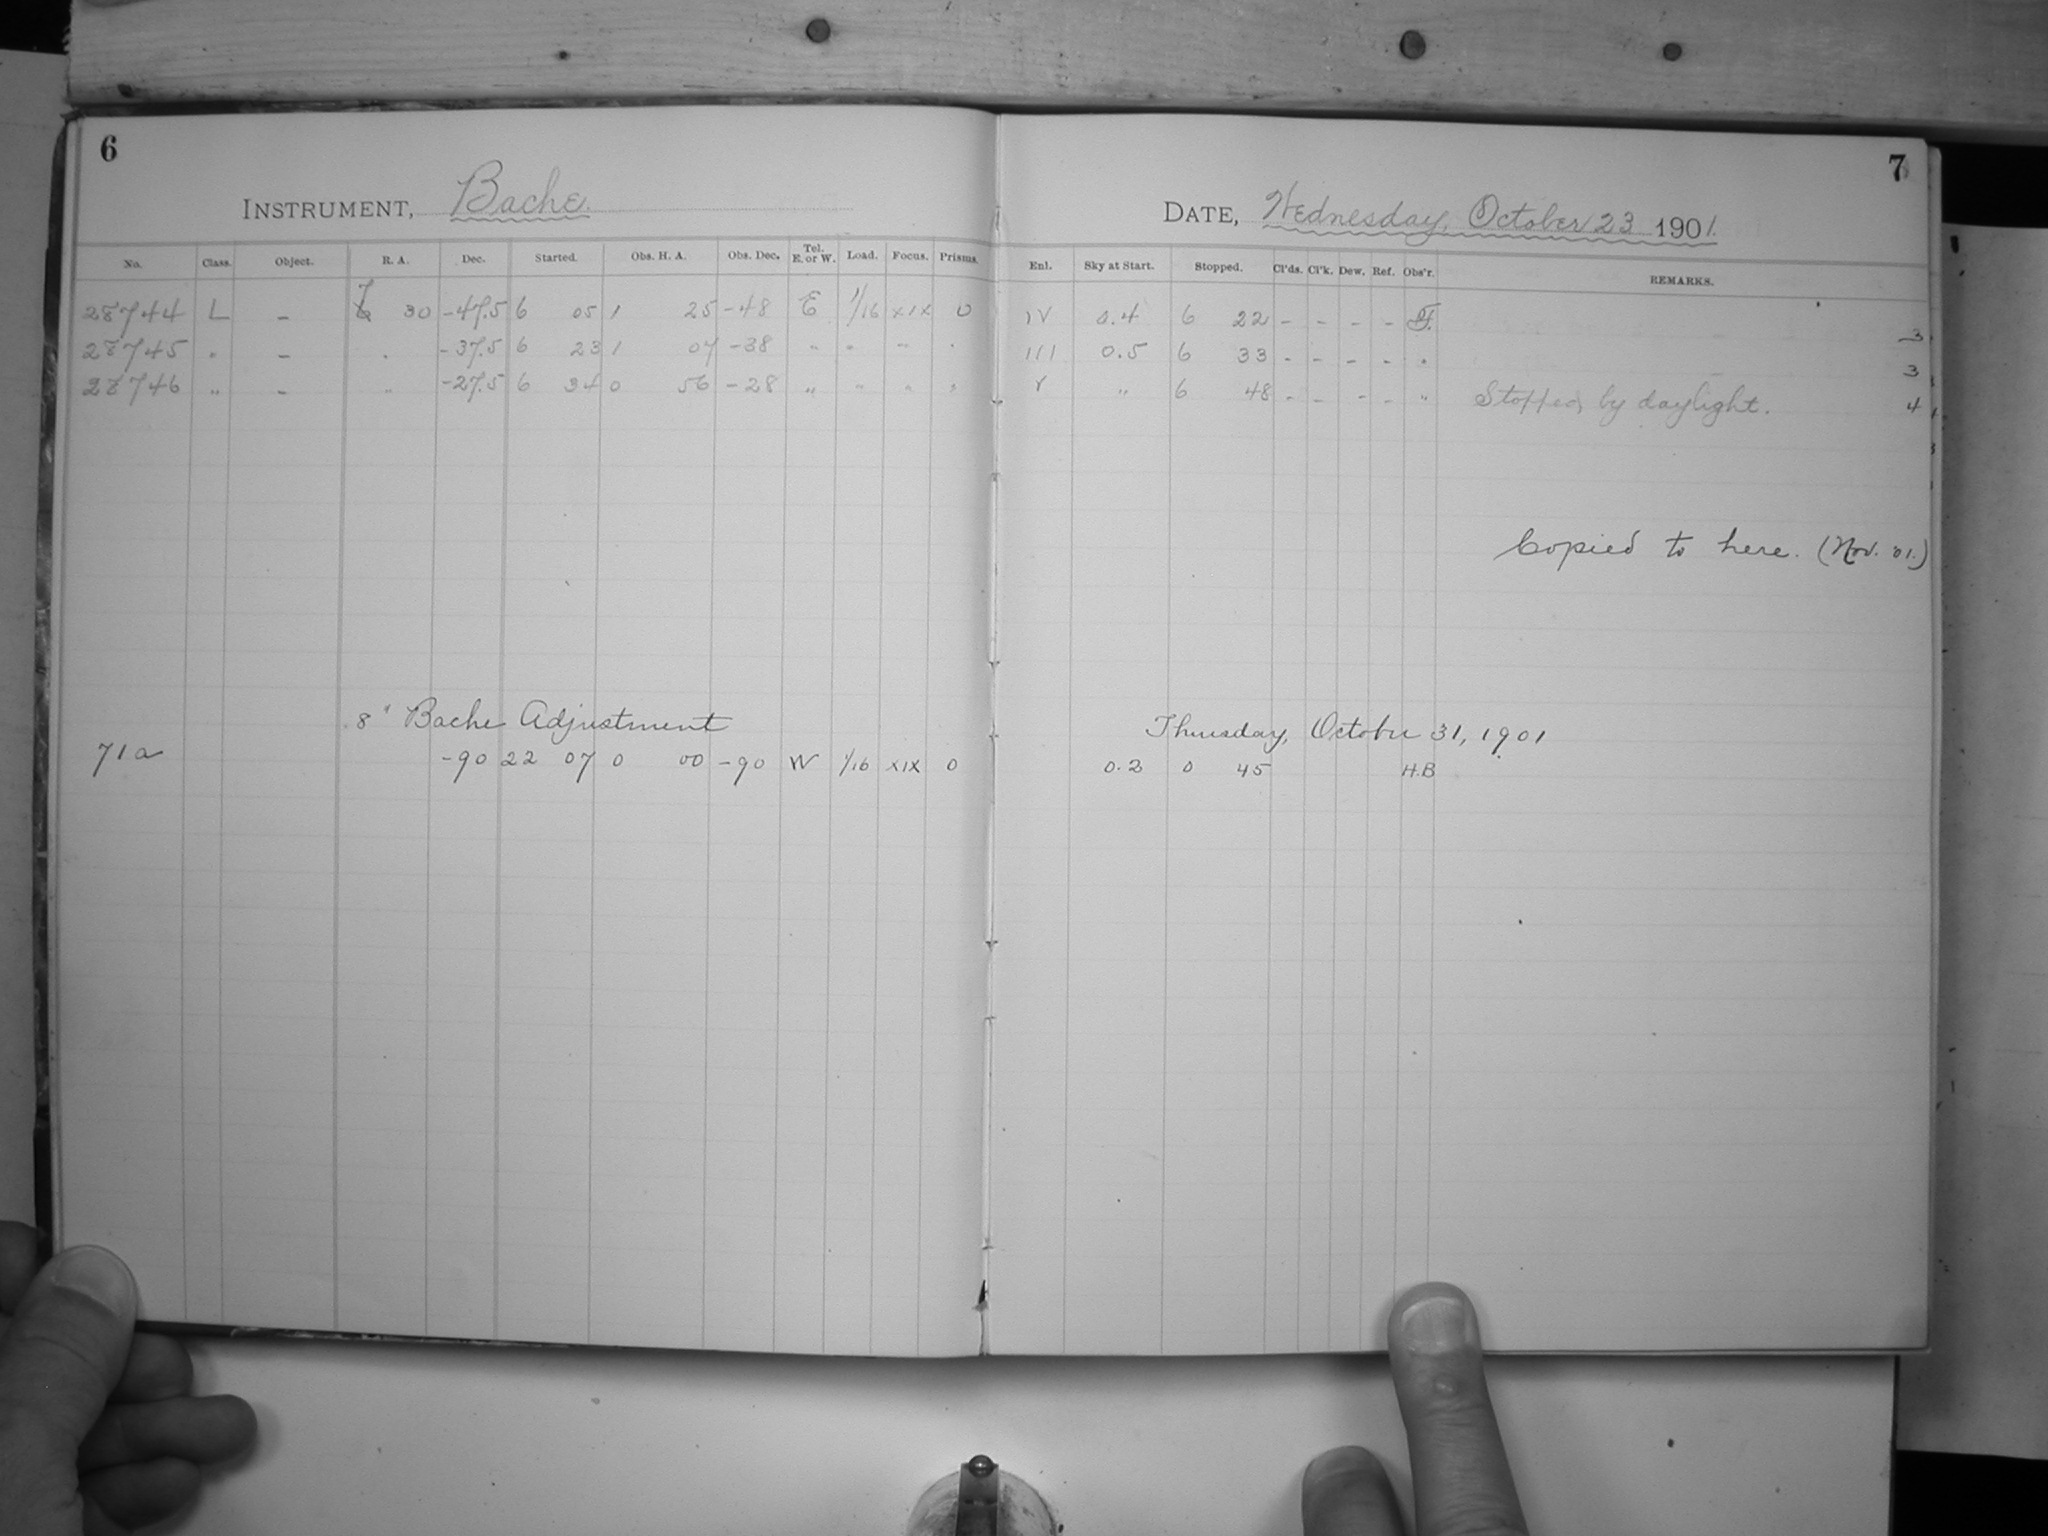 6
INSTRUMENT, Bache.
No. Class. Object. R. A. Dec. Started. Obs. H. A. Obs. Dec. Tel. E. or W. Load. Focus. Prisms.
28744 L - 7 30 -47.5 6 05 1 25 -48 E 1/16 XIX 0
28745 " - " -37.5 6 23 1 07 -38 " " " "
28746 " - " -27.5 6 34 0 56 -28 " " " "
8" Bache Adjustment
71a -90 22 07 0 00 -90 W 1/16 XIX 0
7
DATE, Wednesday, October 23 1901.
Enl. Sky at Start. Stopped. Cl'ds. Cl'k. Dew. Ref. Obs'r. REMARKS.
IV 0.4 6 22 - - - - 3
III 0.5 6 33 - - - - " 3
V " 6 48 - - - - " Stopped by daylight. 4
Copied to here. (Nov. '01.)
Thursday, October 31, 1901
0.2 0 45 H.B